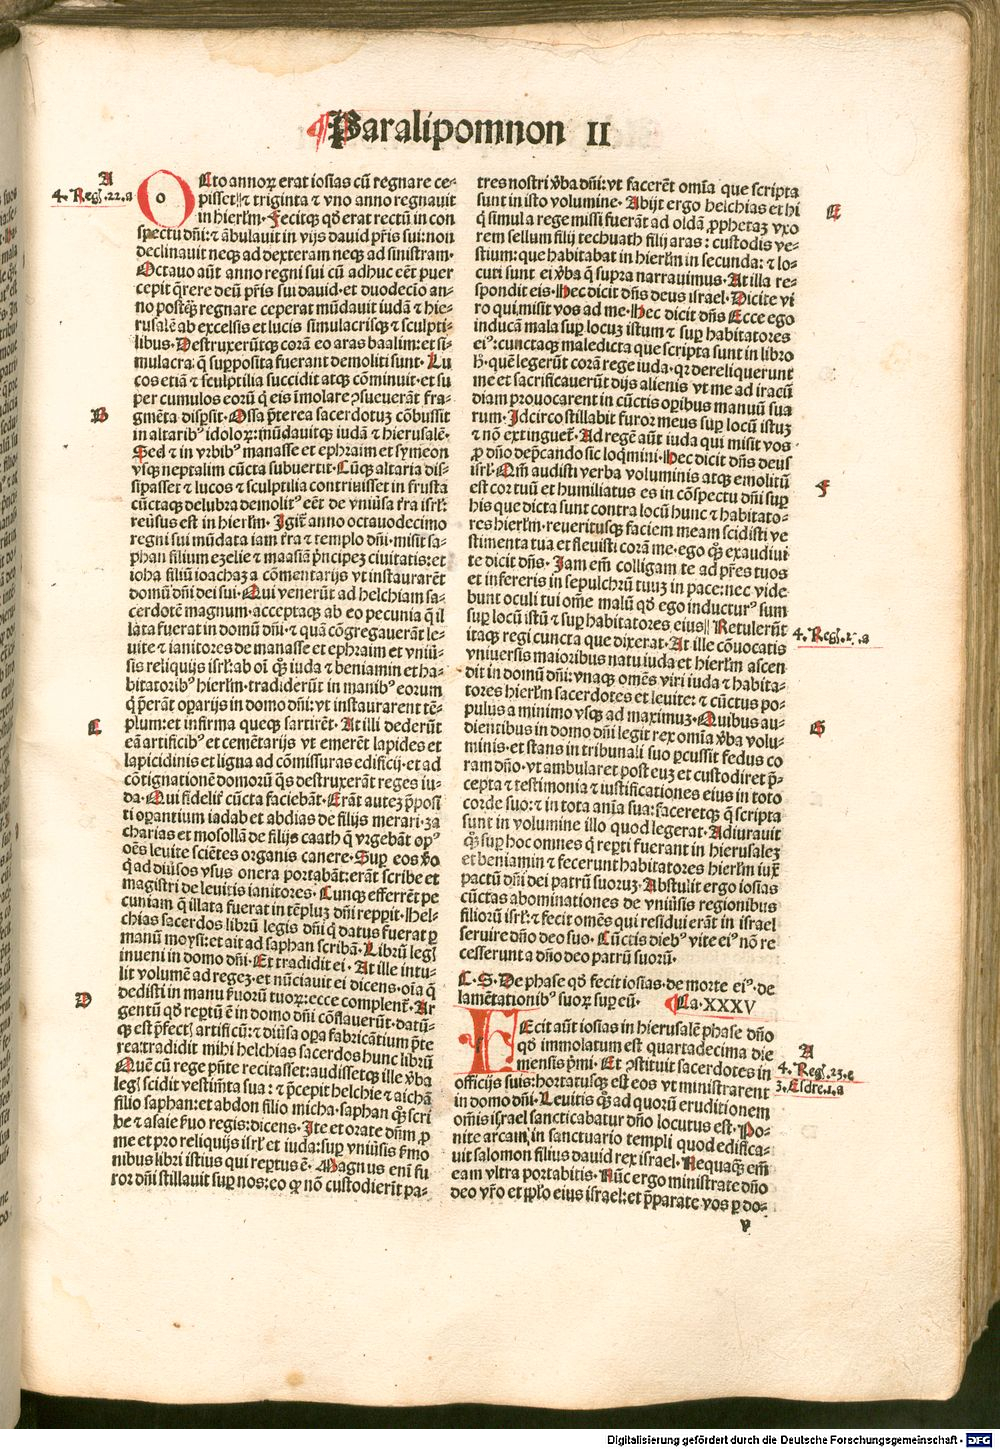 ¶Paralipomnon II
A
4. Reg. 22. a
OCto annoꝝ erat iosias cū regnare ce-
pisset || ⁊ triginta ⁊ vno anno regnauit
in hierlm̄. Fecitqꝫ qḋ erat rectū in con
spectu dn̄i: ⁊ ābulauit in vijs david p̄ris sui: non
declinauit neqꝫ ad dexteram neqꝫ ad sinistram.
Octauo aūt anno regni sui cū adhuc eēt puer
cepit q̄rere deū p̄ris sui david. et duodecīo an-
no postq̄ꝫ regnare ceperat mūdauit iudā ⁊ hie-
rusalē ab excelsis et lucis simulacrisqꝫ ⁊ sculpti-
libus. Destruxerūtqꝫ corā eo aras baalim: et si-
mulacra. q̄ supposita fuerant demoliti sunt. Lu
cos etiā ⁊ sculptilia succidit atqꝫ cōminuit. et su
per cumulos eorū q̄ eis īmolare ꝯsueuerāt fra-
B
gmēta disꝑsit. Ossa p̄terea sacerdotuꝫ cōbussit
in altaribꝰ idoloꝝ: mūdauitqꝫ iudā ⁊ hierusalē.
Sed ⁊ in vrbibꝰ manasse et ephraim et symeon
vsqꝫ neptalim cūcta subuertit. Cūqꝫ altaria dis-
sipasset ⁊ lucos ⁊ sculptilia contriuisset in frusta
cūctaqꝫ delubra demolitꝰ eēt de vniūsa t̄ra isrl̄:
reūsus est in hierlm̄. Igit̄ anno octauodecimo
regni sui mūdata iam t̄ra ⁊ templo dn̄i. misit sa-
phan filium ezelie ⁊ maasiā p̄ncipeꝫ ciuitatis: et
ioha filiū ioachaꝫ a cōmentarijs vt instaurarēt
domū dn̄i dei sui. Qui venerūt ad helchiam sa-
cerdotē magnum. acceptaqꝫ ab eo pecunia q̄ il
lata fuerat in domū dn̄i. ⁊ quā cōgregauerāt le-
uite ⁊ ianitores de manasse et ephraim et vniū-
sis reliquijs isrl̄: ab oī q̄ꝫ iuda ⁊ beniamin et ha-
bitatoribꝰ hierlm̄. tradiderūt in manibꝰ eorum
q̄ p̄erāt oꝑarijs in domo dn̄i: vt instaurarent tē-
C
plum: et infirma queqꝫ sartirēt. At illi dederūt
eā artificibꝰ et cemētarijs vt emerēt lapides et
lapicidinis et ligna ad cōmissuras edificij. et ad
cōtignationē domorū q̄s destruxerāt reges iu-
da. Qui fidelit̄ cūcta faciebāt. Erāt auteꝫ p̄posi
ti oꝑantium iadab et abdias de filijs merari. ꝫa
charias et mosollā de filijs caath q̄ vrgebāt opꝰ
oēs leuite sciētes organis canere. Suꝑ eos v̄o
q̄ ad diūsos vsus onera portabāt: erāt scribe et
magistri de leuitis ianitores. Cunqꝫ efferrēt pe
cuniam q̄ illata fuerat in tēpluꝫ dn̄i reꝑꝑit. Hel-
chias sacerdos librū legis dn̄i q̄ datus fuerat ꝑ
manū moysi: et ait ad saphan scribā. Librū legꝭ
inueni in domo dn̄i. Et tradidit ei. At ille intu-
lit volumē ad regeꝫ. et nūciauit ei dicens. oīa q̄
D
dedisti in manu ẜuorū tuoꝝ: ecce complent̄. Ar
gentū qḋ reꝑtū ē in domo dn̄i cōflauerūt. datū-
qꝫ est p̄fectꝭ artificū: ⁊ diūsa oꝑa fabricātium p̄te
rea: tradidit mihi helchias sacerdos hunc librū
Quē cū rege p̄nte recitasset: audissetqꝫ ille v̄ba
legꝭ scidit vestim̄ta sua: ⁊ p̄cepit helchie ⁊ aichā
filio saphan: et abdon filio micha. saphan q̄ꝫ scri
be ⁊ asaie ẜuo regis: dicens. Ite et orate dn̄m ꝓ
me et pro reliquijs isrl̄ et iuda: suꝑ vniūsis ẜmo
nibus libri istius qui reꝑtus ē. Magnus enī fu
ror dn̄i stillauit suꝑ nos: eo qꝫ nō custodierīt pa-
tres nostri v̄ba dn̄i: vt facerēt omīa que scripta
sunt in isto volumine. Abijt ergo helchias et hi
E
q̄ simul a rege missi fuerāt ad oldā ꝓphetaꝫ vxo
rem sellum filij techuath filij aras: custodis ve-
stium: que habitabat in hierlm̄ in secunda: ⁊ lo-
cuti sunt ei v̄ba q̄ supra narrauimus. At illa re-
spondit eis. Hec dicit dn̄s deus israel. Dicite vi
ro qui misit vos ad me. Hec dicit dn̄s Ecce ego
inducā mala suꝑ locuꝫ istum ⁊ suꝑ habitatores
eiꝰ: cunctaqꝫ maledicta que scripta sunt in libro
h̄. quē legerūt corā rege iuda. qꝛ dereliquerunt
me et sacrificauerūt dijs alienis vt me ad iracū
diam prouocarent in cūctis oꝑibus manuū sua
rum. Idcirco stillabit furor meus suꝑ locū istuꝫ
⁊ nō extinguet̄. Ad regē aūt iuda qui misit vos
ꝓ dn̄o dep̄cando sic loq̄mini. Hec dicit dn̄s deus
isrl̄. Qm̄ audisti verba voluminis atqꝫ emolitū
F
est cor tuū et humiliatus es in cōspectu dn̄i suꝑ
his que dicta sunt contra locū hunc ⁊ habitato-
res hierlm̄. reueritusqꝫ faciem meam scidisti ve
stimenta tua et fleuisti corā me. ego q̄ꝫ exaudiui
te dicit dn̄s. Iam em̄ colligam te ad p̄res tuos
et infereris in sepulchrū tuuꝫ in pace: nec vide
bunt oculi tui om̄e malū qḋ ego inducturꝰ sum
suꝑ locū istū ⁊ suꝑ habitatores eius || Retulerūt
4. Reg. a
itaqꝫ regi cuncta que dixerat. At ille cōuocatis
vniuersis maioribus natu iuda et hierlm̄ ascen
dit in domū dn̄i: vnaqꝫ omēs viri iuda ⁊ habita-
tores hierlm̄ sacerdotes et leuite: ⁊ cūctus po-
pulus a minimo vsqꝫ ad maximuꝫ. Quibus au-
G
dientibus in domo dn̄i legit rex omīa v̄ba volu-
minis. et stans in tribunali suo ꝑcussit fedus co
ram dn̄o. vt ambularet post euꝫ et custodiret p̄-
cepta ⁊ testimonia ⁊ iustificationes eius in toto
corde suo: ⁊ in tota anīa sua: faceretqꝫ q̄ scripta
sunt in volumine illo quod legerat. Adiurauit
q̄ꝫ suꝑ hoc omnes q̄ reꝑti fuerant in hierusaleꝫ
et beniamin ⁊ fecerunt habitatores hierlm̄ iuxͣ
pactū dn̄i dei patrū suoruꝫ. Abstulit ergo iosias
cūctas abominationes de vniūsis regionibus
filiorū isrl̄: ⁊ fecit omēs qui residui erāt in israel
seruire dn̄o deo suo. Cūctis diebꝰ vite eiꝰ nō re
cesserunt a dn̄o deo patrū suorū.
C. S. De phase qḋ fecit iosias. de morte eiꝰ. de
lamētationibꝰ suoꝝ suꝑ eū. ¶Ca. XXXV
FEcit aūt iosias in hierusalē phase dn̄o
qḋ immolatum est quartadecima die
A
mensis p̄mi. Et ꝯstituit sacerdotes in
4. Reg. 23. e
officijs suis: hortatusqꝫ est eos vt ministrarent
3. Esdre. 1. a
in domo dn̄i. Leuitis q̄ꝫ ad quorū eruditionem
om̄is israel sancticabatur dn̄o locutus est. Po-
nite arcam in sanctuario templi quod edifica-
uit salomon filius dauid rex israel. Nequaq̄ꝫ em̄
eam vltra portabitis. Nūc ergo ministrate dn̄o
deo vr̄o et ꝑp̄lo eius israel: et p̄parate vos ꝑ do-
v
Digitalisierung gefördert durch die Deutsche Forschungsgemeinschaft - DFG